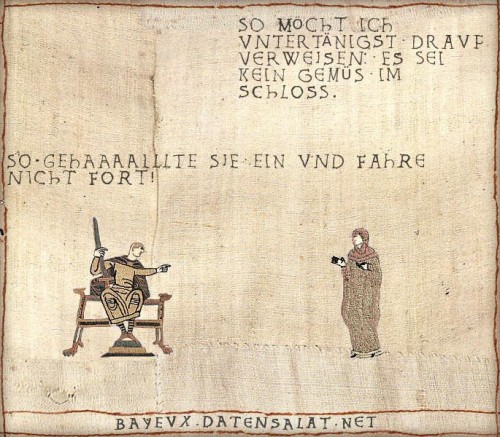 SO MÖCHT ICH
VNTERTÄNIGST · DRAVF
VERWEISEN: ES SEI
KEIN GEMÜS · IM
SCHLOSS.
SO · GEHAAAALLLTE SIE · EIN VND FAHRE
NICHT FORT!
BAYEVX · DATENSALAT · NET